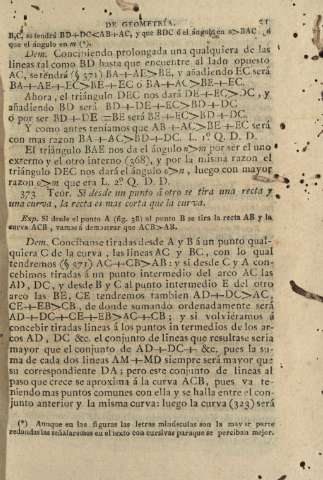 DE GEOMETRÍA. 21
B,C, se tendrá BD+DC<AB+AC, y que BDC ó el ángulo o>BAC ó
que el ángulo en m (*).
Dem. Concíbiendo prolongada una qualquiera de las
líneas tal como BD hasta que encuentre al lado opuesto
AC, se tendrá (§ 371) BA+AE>BE, y añadiendo EC será
BA+AE+EC>BE+EC ó BA+AC>BE+EC.
Ahora, el triángulo DEC nos dará DE+EC>DC, y
añadiendo BD será BD+DE+EC>BD+DC
ó por ser BD+DE=BE será BE+EC>BD+DC.
Y como antes teníamos que AB+AC>BE+EC será
con mas razon BA+AC>BD+DC. L. 1º Q. D. D.
El triángulo BAE nos da el ángulo n>m por ser el uno
externo y el otro interno (368), y por la misma razon el
triángulo DEC nos dará el ángulo o>n, luego con mayor
razon o>m que era L. 2º Q. D. D.
373 Teor. Si desde un punto á otro se tira una recta y
una curva, la recta es mas corta que la curva.
Exp. Si desde el punto A (fig. 38) al punto B se tira la recta AB y la
curva ACB, vamos á demostrar que ACB>AB.
Dem. Concíbanse tiradas desde A y B á un punto qual-
quiera C de la curva, las líneas AC y BC, con lo qual
tendremos (§ 371) AC+CB>AB: y si desde C y A con-
cebimos tiradas á un punto intermedio del arco AC las
AD, DC, y desde B y C al punto intermedio E del otro
arco las BE, CE tendremos tambien AD+DC>AC,
CE+EB>CB, de donde sumando ordenadamente será
AD+DC+CE+EB>AC+CB; y si volviéramos á
concebir tiradas líneas á los puntos intermedios de los ar-
cos AD, DC &c. el conjunto de líneas que resultase seria
mayor que el conjunto de AD+DC+ &c, pues la su-
ma de cada dos líneas AM+MD siempre será mayor que
su correspondiente DA; pero este conjunto de líneas al
paso que crece se aproxîma á la curva ACB, pues va te-
niendo mas puntos comunes con ella y se halla entre el con-
junto anterior y la misma curva: luego la curva (323) será
(*) Aunque en las figuras las letras minúsculas son la mayor parte
redondas las señalaremos en el texto con cursivas para que se perciban mejor.